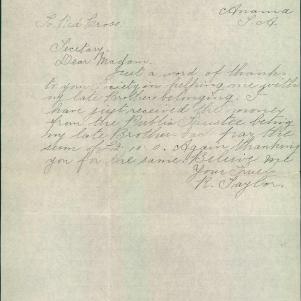 Anama
S.A.
To Red Cross
Secretary.
Dear Madam.
Just a word of thanks
to your Society in helping me getting
my late Brothers belonging. I
have just received the money
from the Public Trustee being
my late Brother pay the
sum of £ 10 0. Again thanking
you for the same. Believe me
Your Truly
R. Taylor.